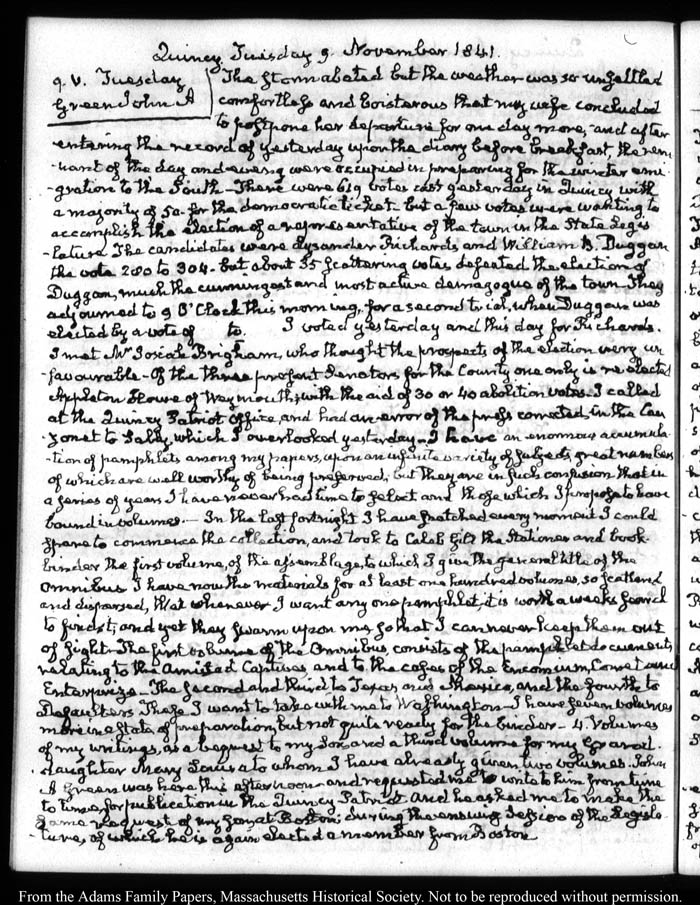 Quincy Tuesday 9. November 1841.
9. V. Tuesday
Green John A
The storm abated but the weather was so unsettled
comfortless and boisterous that my wife concluded
to postpone her departure for one day more, and after
entering the record of yesterday upon the diary before breakfast, the rem-
-nant of the day and evening were occupied in preparing for the winter emi-
-gration to the South. There were 619 votes cast yesterday in Quincy with
a majority of 50 for the democratic ticket but a few votes were wanting to
accomplish the election of a representative of the town in the State Legis
-lature. The candidates were Lysander Richards and William B. Duggan
the vote 280 to 304. but about 35 scattering votes defeated the election of
Duggan, much the cunningest and most active demagogue of the town. They
adjourned to 9 O'Clock this morning, for a second trial, when Duggan was
elected by a vote of to. I voted yesterday and this day for Richards.
I met Mr Josiah Brigham, who thought the prospects of the election very un
-favourable. Of the three present Senators for the County one only is re elected
Appleton Howe of Weymouth; with the aid of 30 or 40 abolition votes. I called
at the Quincy Patriot office, and had an error of the press corrected, in the Can
-zonet to Sally, which I overlooked yesterday. I have an enormous accumula
-tion of pamphlets among my papers, upon an infinite variety of subjects, great numbers
of which are well worthy of being preserved; but they are in such confusion that in
a series of years I have never had time to select and those which I propose to have
bound in volumes. In the last fortnight I have snatched every moment I could
spare to commence the collection, and took to Caleb Gill the Stationer and book-
binder the first volume, of the assemblage, to which I give the general title of the
Omnibus I have now the materials for at least one hundred volumes, so scattered
and dispersed, that whenever I want any one pamphlet, it is worth a weeks search
to find it; and yet they swarm upon me so that I can never keep them out
of sight. The first volume of the Omnibus, consists of the pamphlet documents,
relating to the Amistad Captives, and to the cases of the Encomium, Comet and
Enterprize. The second and third to Texas and Mexico, and the fourth to
Defaulters These I want to take with me to Washington. I have seven volumes
more in a state of preparation, but not quite ready for the binder. 4. Volumes
of my writings, as a bequest to my Son, and a third volume for my Grand-
daughter Mary Louisa to whom I have already given two volumes. John
A Green was here this afternoon and requested me to write to him from time
to time, for publication in the Quincy Patriot And he asked me to make the
same request of my son at Boston; during the ensuing Session of the Legisla-
-ture, of which he is again elected a member from Boston
From the Adams Family Papers, Massachusetts Historical Society. Not to be reproduced without permission.